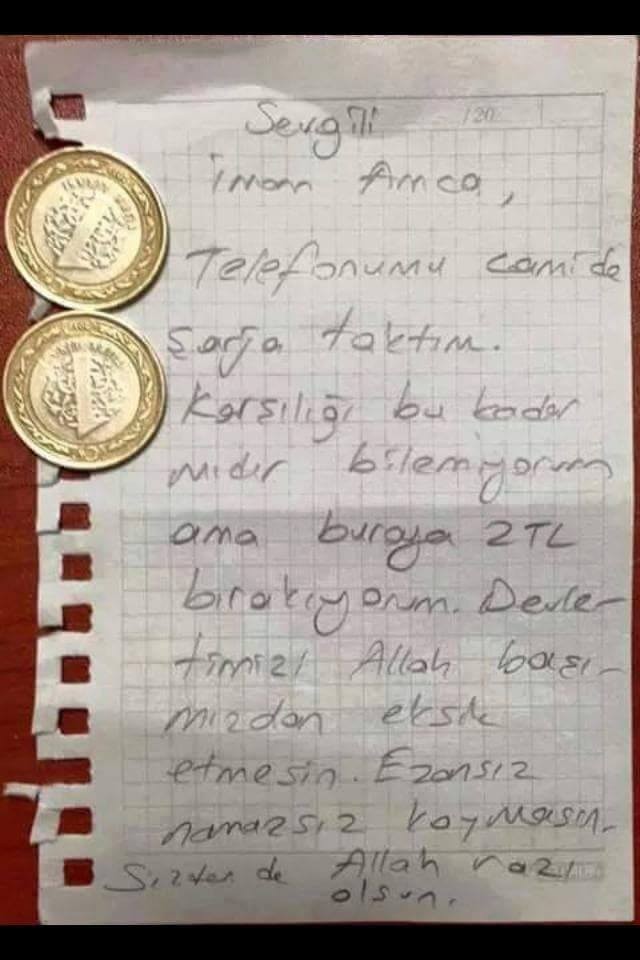 /20
Sevgili
imam Amca,
Telefonumu camide
şarja taktım.
Karşılığı bu kadar
mıdır bilemiyorum
ama buraya 2TL
bırakıyorum. Devle-
timizi Allah başı-
mızdan eksik
etmesin. Ezansız
namazsız koymasın.
Sizden de Allah razı
olsun.